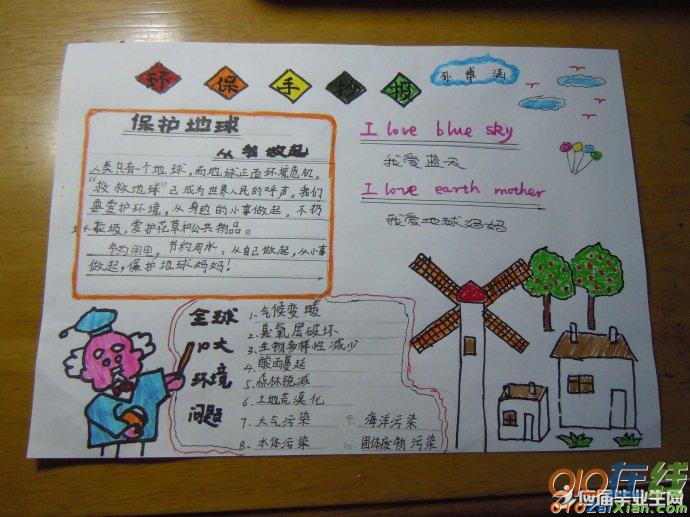 环 保 手 抄 报
保护地球
从我做起
人类只有一个地球,而地球正面环境危机。
"救救地球"已成为世界人民的呼声。我们
要爱护环境,从身边的小事做起。不扔
垃圾,爱护花草和公共物品。
节约用电,节约用水。从自己做起,从小事
做起,保护地球妈妈!
I love blue sky
我爱蓝天
I love earth mother
我爱地球妈妈
全球
十大
环境
问题
1.气候变暖
2.臭氧层破坏
3.生物多样性减少
4.酸雨蔓延
5.森林锐减
6.土地荒漠化
7.大气污染
8.水体污染
9.海洋污染
10.固体废物污染
010在线
应届毕业生网
010ZaiXian.com